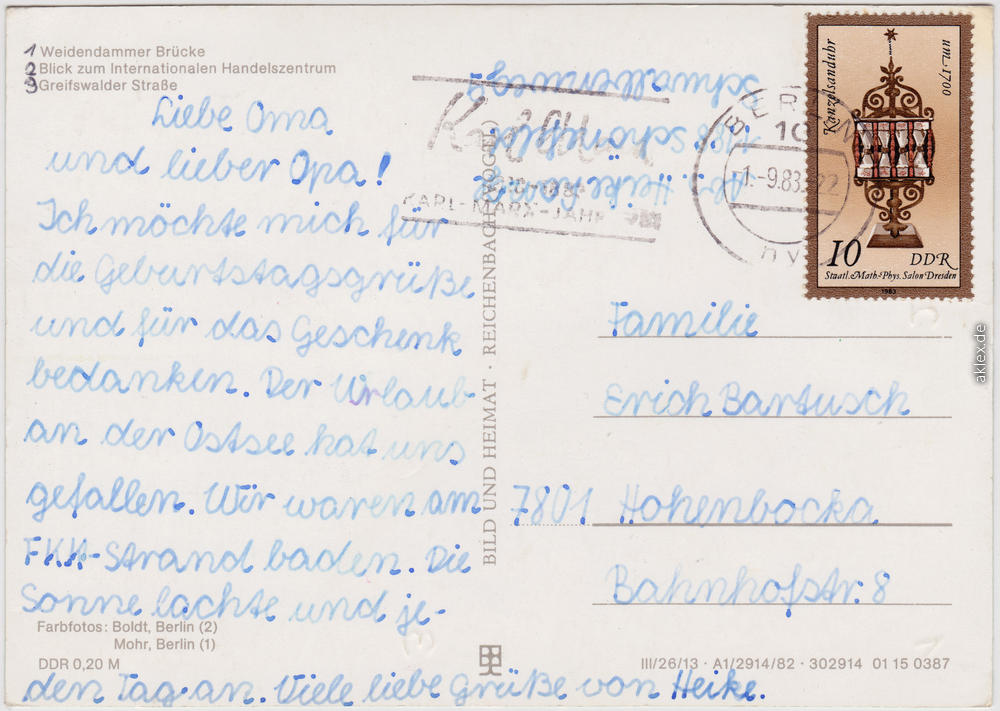 1 Weidendammer Brücke
2 Blick zum Internationalen Handelszentrum
3 Greifswalder Straße
Liebe Oma
und lieber Opa!
Ich möchte mich für
die Geburtstagsgrüße
und für das Geschenk
bedanken. Der Urlaub
an der Ostsee hat uns
gefallen. Wir waren am
FKK-Strand baden. Die
Sonne lachte und je-
den Tag an. Viele liebe Grüße von Heike.
Farbfotos: Boldt, Berlin (2)
Mohr, Berlin (1)
DDR 0,20 M
BILD UND HEIMAT · REICHENBACH (VOGTL)
Abs. Heike
Schwalbenweg
KARL-MARX-JAHR
BERLIN
10
-1.-9.83.-22
Kanzelsanduhr
um 1700
10 DDR
Staatl. Math.-Phys. Salon Dresden
1983
Familie
Erich Bartusch
7801 Hohenbocka
Bahnhofstr. 8
III/26/13 · A1/2914/82 · 302914 01 15 0387
aklex.de